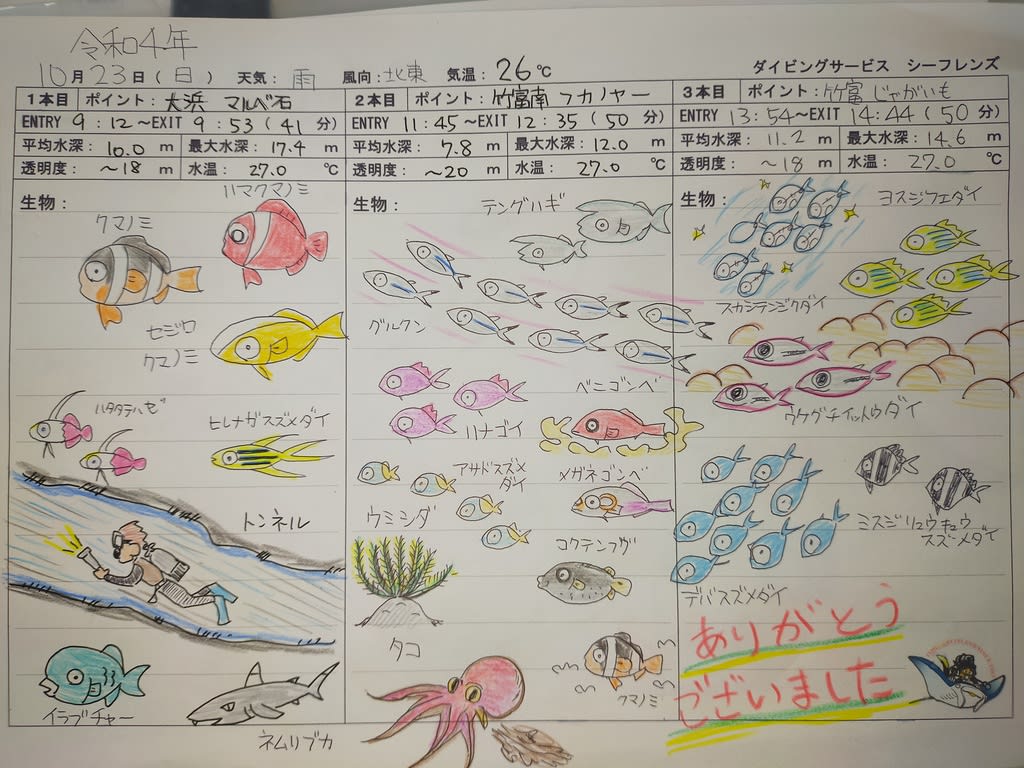 令和4年
10月23日(日) 天気：雨 風向：北東 気温：26℃ ダイビングサービス シーフレンズ
1本目 ポイント：大浜 マルベ石
ENTRY 9：12～EXIT 9：53(41 分)
平均水深：10.0 m 最大水深：17.4 m
透明度：～18 m 水温：27.0 ℃
生物：
クマノミ
ハマクマノミ
セジロ
クマノミ
ハタタテハゼ
ヒレナガスズメダイ
トンネル
イラブチャー
ネムリブカ
2本目 ポイント：竹富南 フカノヤー
ENTRY 11：45～EXIT 12：35(50 分)
平均水深：7.8 m 最大水深：12.0 m
透明度：～20 m 水温：27.0 ℃
生物：
テングハギ
グルクン
ハナゴイ
ベニゴンベ
アサドスズメ
ダイ
メガネゴンベ
ウミシダ
コクテンフグ
タコ
クマノミ
3本目 ポイント：竹富 じゃがいも
ENTRY 13：54～EXIT 14：44(50 分)
平均水深：11.2 m 最大水深：14.6 m
透明度：～18 m 水温：27.0 ℃
生物：
ヨスジフエダイ
スカシテンジクダイ
ウケグチイットウダイ
ミスジリュウキュウ
スズメダイ
デバスズメダイ
ありがとう
ございました